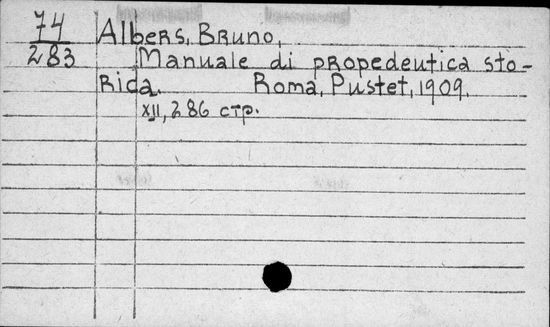 74
283
Albers, Bruno,
Manuale di propedeutica sto-
rica. Roma, Pustet, 1909.
XII, 286 стр.